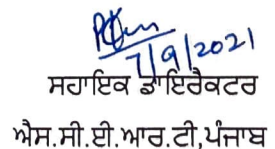 7/9/2021
ਸਹਾਇਕ ਡਾਇਰੈਕਟਰ
ਐਸ.ਸੀ.ਈ.ਆਰ.ਟੀ,ਪੰਜਾਬ